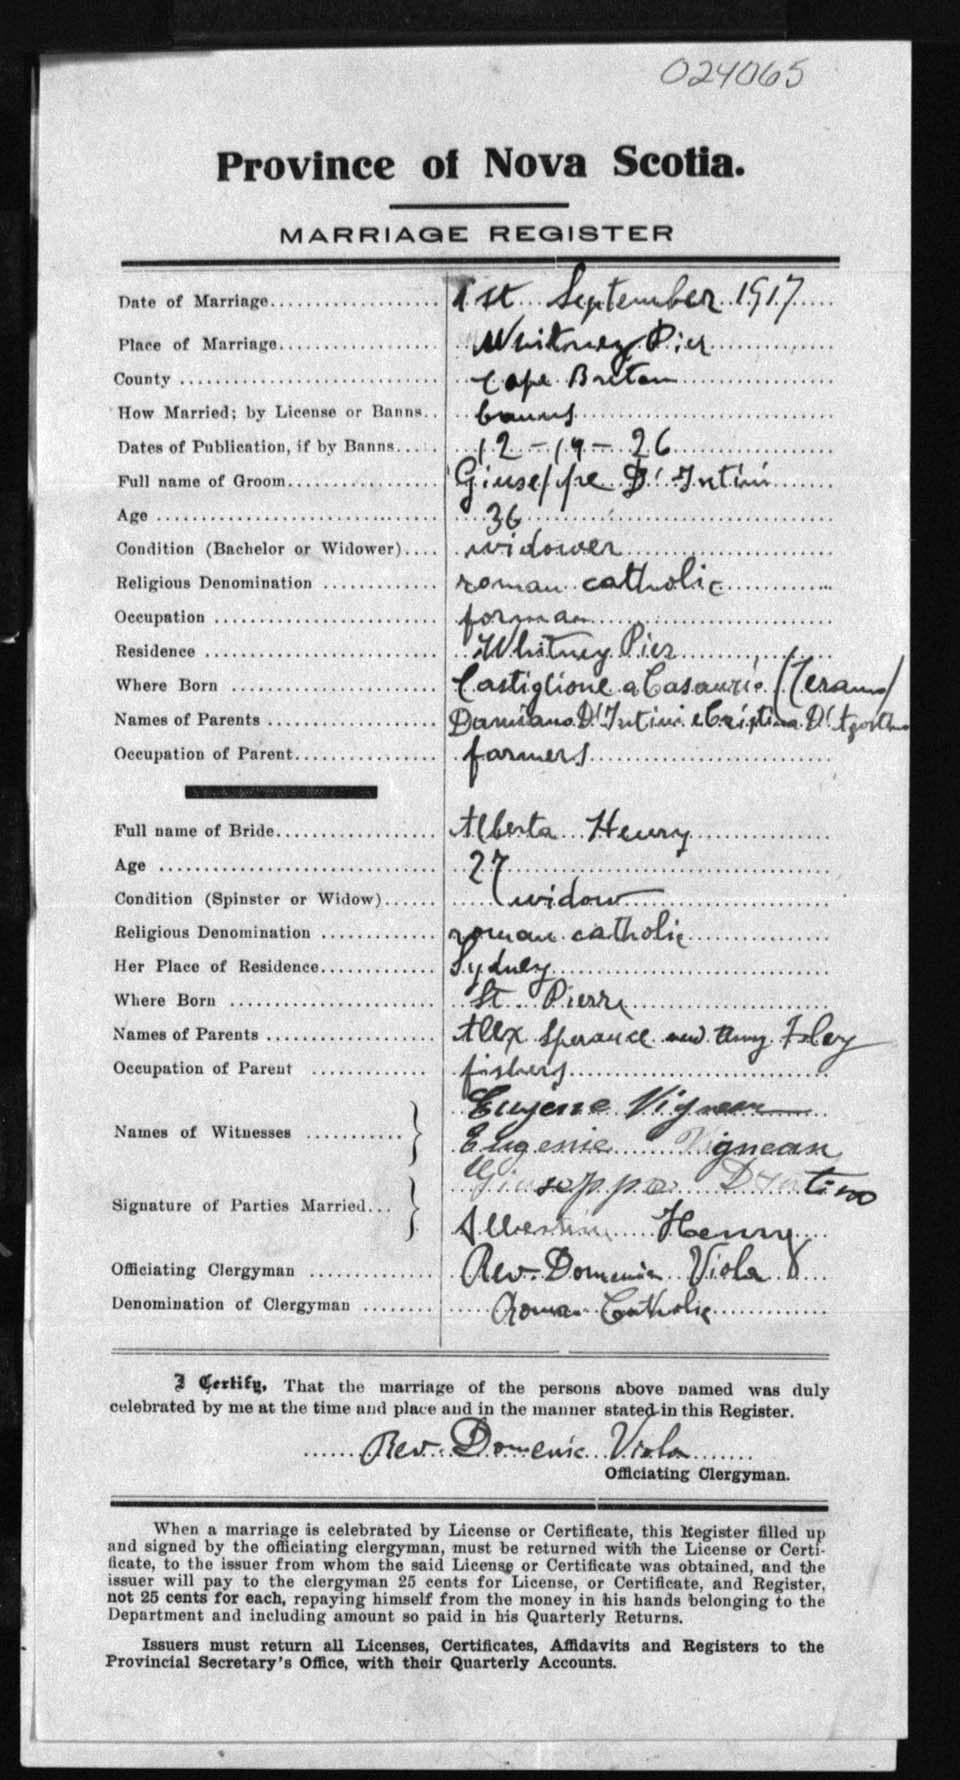 024065
Province of Nova Scotia.
MARRIAGE REGISTER
Date of Marriage................... 1st September 1917
Place of Marriage................... Whitney Pier
County ................... Cape Breton
How Married; by License or Banns.. banns
Dates of Publication, if by Banns..... 12 - 19 - 26
Full name of Groom................... Giuseppe D'Intini
Age ................... 36
Condition (Bachelor or Widower).... widower
Religious Denomination ............. roman catholic
Occupation ................... forman
Residence ................... Whitney Pier
Where Born ................... Castiglione a Casauria (Teramo)
Names of Parents ................... Damiano D'Intini e Cristina D'Agostino
Occupation of Parent................... farmers
Full name of Bride................... Alberta Henry
Age ................... 27
Condition (Spinster or Widow)...... widow
Religious Denomination ............. roman catholic
Her Place of Residence............. Sydney
Where Born ................... St. Pierre
Names of Parents ................... Alex Sperance and Amy
Occupation of Parent ............. fishers
Eugène Vigneau
Names of Witnesses ...........
Eugenie Vigneau
Giuseppe D'Intino
Signature of Parties Married...
Henry
Officiating Clergyman ............. Rev. Domenic Viola
Denomination of Clergyman ........ Roman Catholic
I Certify, That the marriage of the persons above named was duly
celebrated by me at the time and place and in the manner stated in this Register.
Rev. Domenic Viola
Officiating Clergyman.
When a marriage is celebrated by License or Certificate, this Register filled up
and signed by the officiating clergyman, must be returned with the License or Certi-
ficate, to the issuer from whom the said License or Certificate was obtained, and the
issuer will pay to the clergyman 25 cents for License, or Certificate, and Register,
not 25 cents for each, repaying himself from the money in his hands belonging to the
Department and including amount so paid in his Quarterly Returns.
Issuers must return all Licenses, Certificates, Affidavits and Registers to the
Provincial Secretary's Office, with their Quarterly Accounts.